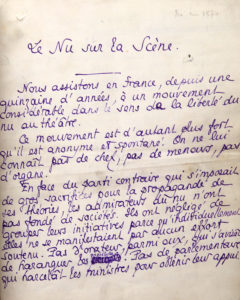 Le Nu sur la Scène.
Nous assistons en France, depuis une
quinzaine d'années, à un mouvement
considérable dans le sens de la liberté du
nu au théâtre.
Ce mouvement est d'autant plus fort
qu'il est anonyme et spontané. On ne lui
connaît pas de chef, pas de meneurs, pas
d'organe.
En face du parti contraire qui s'imposait
de gros sacrifices pour la propagande de
ses théories, les admirateurs du nu n'ont
pas fondé de sociétés. Ils ont négligé de
grouper leurs initiatives parce qu'individuellement
elles ne se manifestaient par aucun effort
soutenu. Pas d'orateur, parmi eux, qui s'avisât
de haranguer Pas de parlementaire
qui harcelât les ministres pour obtenir leur appui.